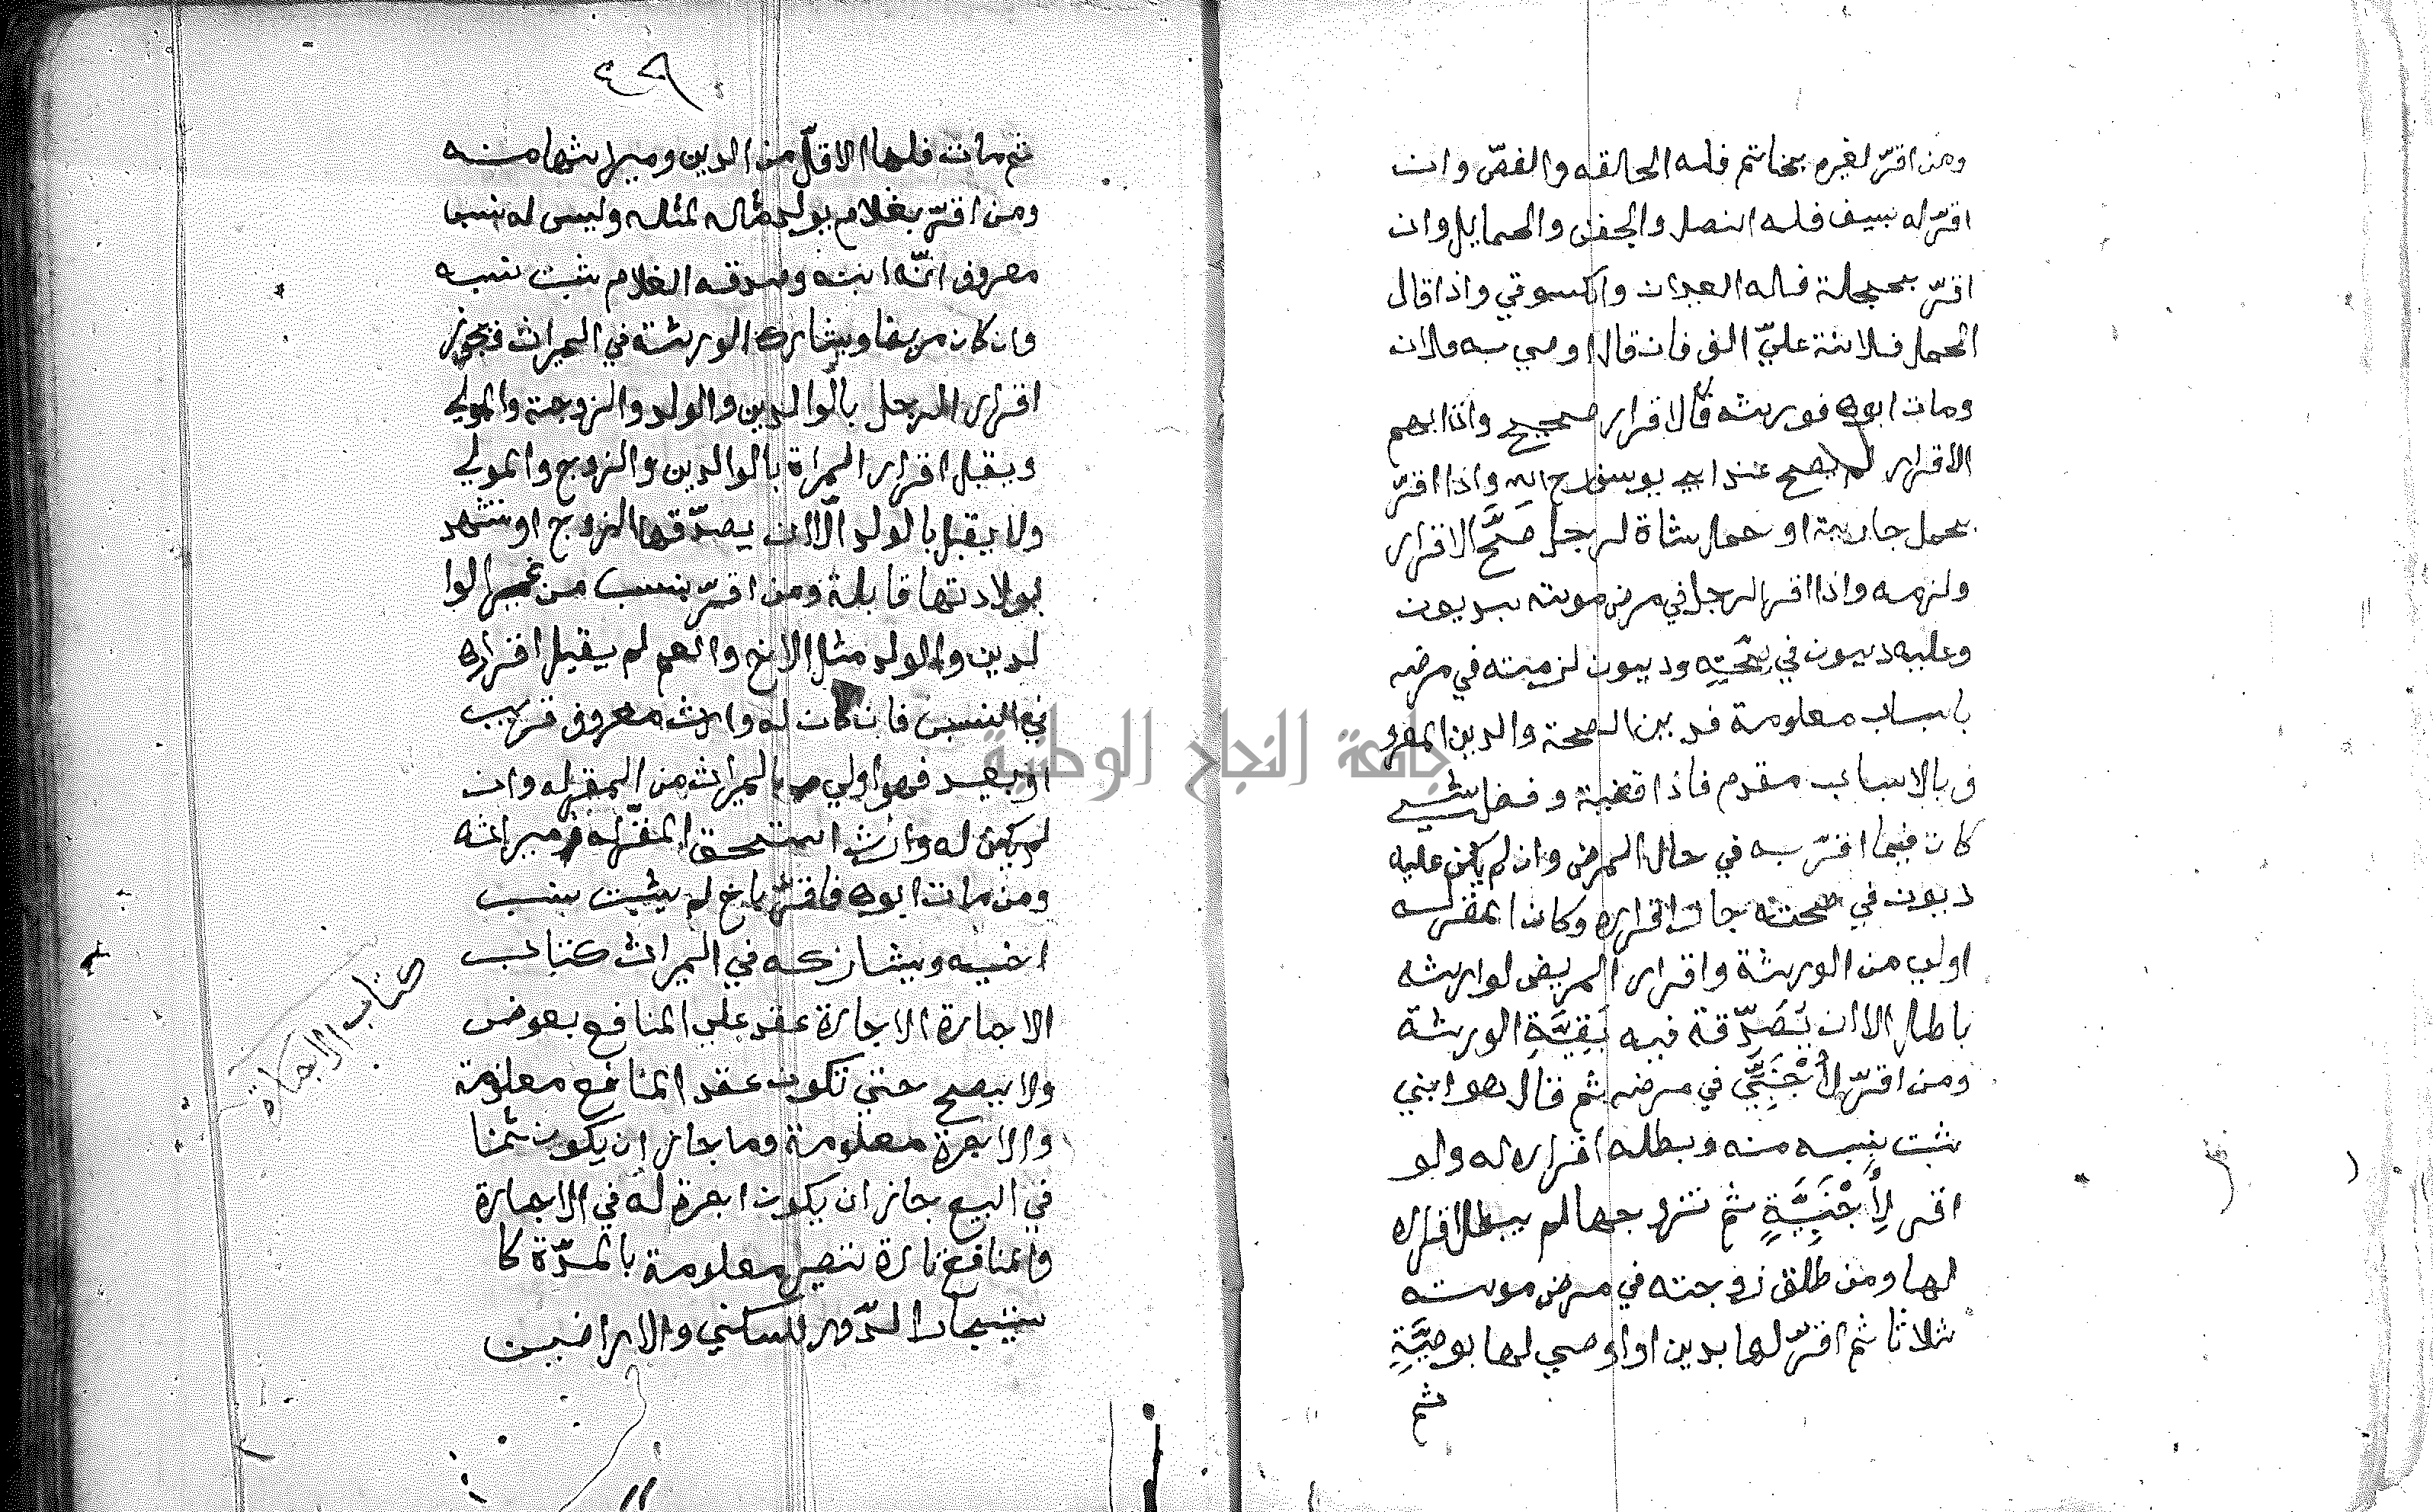 ومن اقرّ لغيره بخاتم فله الحالقه والفصّ وان
اقرّ له بسيف فله النصل والجفن والحمايل وان
اقرّ بحجلة فله العيدان والكسوتي واذا قال
لحمل فلانة عليّ الف فان قال اوصي به فلان
ومات ابوه فورثه فالاقرار صحيح واذا ابهم
الاقرار لم يصح عند ابي يوسف رح الله واذا اقرّ
بحمل جارية او حمل شاة لرجل صَحَّ الاقرار
ولزمه واذا اقر الرجل في مرض موته بديون
وعليه ديون في صحّتِه وديون لزمته في مرضه
باسباب معلومة فدين الصحة والدين المعرو
ف بالاسباب مقدم فاذا قضية وفضل شيء
كان فيما اقرّ به في حال المرض وان لم يكن عليه
ديون في صحته جاز اقراره وكان المقر له
اولي من الورثة واقرار المريض لوارثه
باطل الا ان يَصَدِّقة فيه بَقِيَّةِ الورثة
ومن اقرّ لأَجْنَبِيٍّ في مرضه ثم قال هو ابني
ثبت نسبه منه وبطله اقراره له ولو
اقر لِأَجْنَبِيَّةٍ ثم تزوجها لم يبطل اقراره
لها ومن طلق زوجته في مرض موته
ثلاثا ثم اقرّ لها بدين او اوصي لها بوصِيَّةِ
ثم
٤٩
ثم مات فلها الاقلّ من الدين وميراثها منه
ومن اقرّ بغلام يولد مثاله لمثله وليس له نسبا
معروف انّه ابنه وصدقه الغلام ثبت نسبه
وان كان مريضا ويشارك الورثة في الميراث فيجوز
اقرار الرجل بالوالدين والولد والزوجة والمولي
ويقبل اقرار المراة بالوالدين والزوج والمولي
ولا يقبل بالولد الّا ان يصدّقها الزوج او تشهد
بولادتها قابلة ومن اقرّ بنسب من غير الوا
لدين والولد مثل الاخ والعم لم يقبل اقراره
في النسب فان كان له وارث معروف قريب
او بعيد فهو اولي بالميراث من المقر له وان
لم يكن له وارث استحق المقرّ له ميراثه
ومن مات ابوه فاقرّ باخ لم يثبت بنسب
اخيه ويشاركه في الميراث كتاب
الاجارة الاجارة عقد علي المنافع بعوض
ولا يصح حتي تكون عقد المنافع معلومة
والاجرة معلومة وما جاز ان يكون ثمنا
في البيع جاز ان يكون اجرة له في الاجارة
والمنافع تارة تصير معلومة بالمدّة كا
ستيجار الدّور للسكني والاراضين
كتاب الاجارة
جامعة النجاح الوطنية